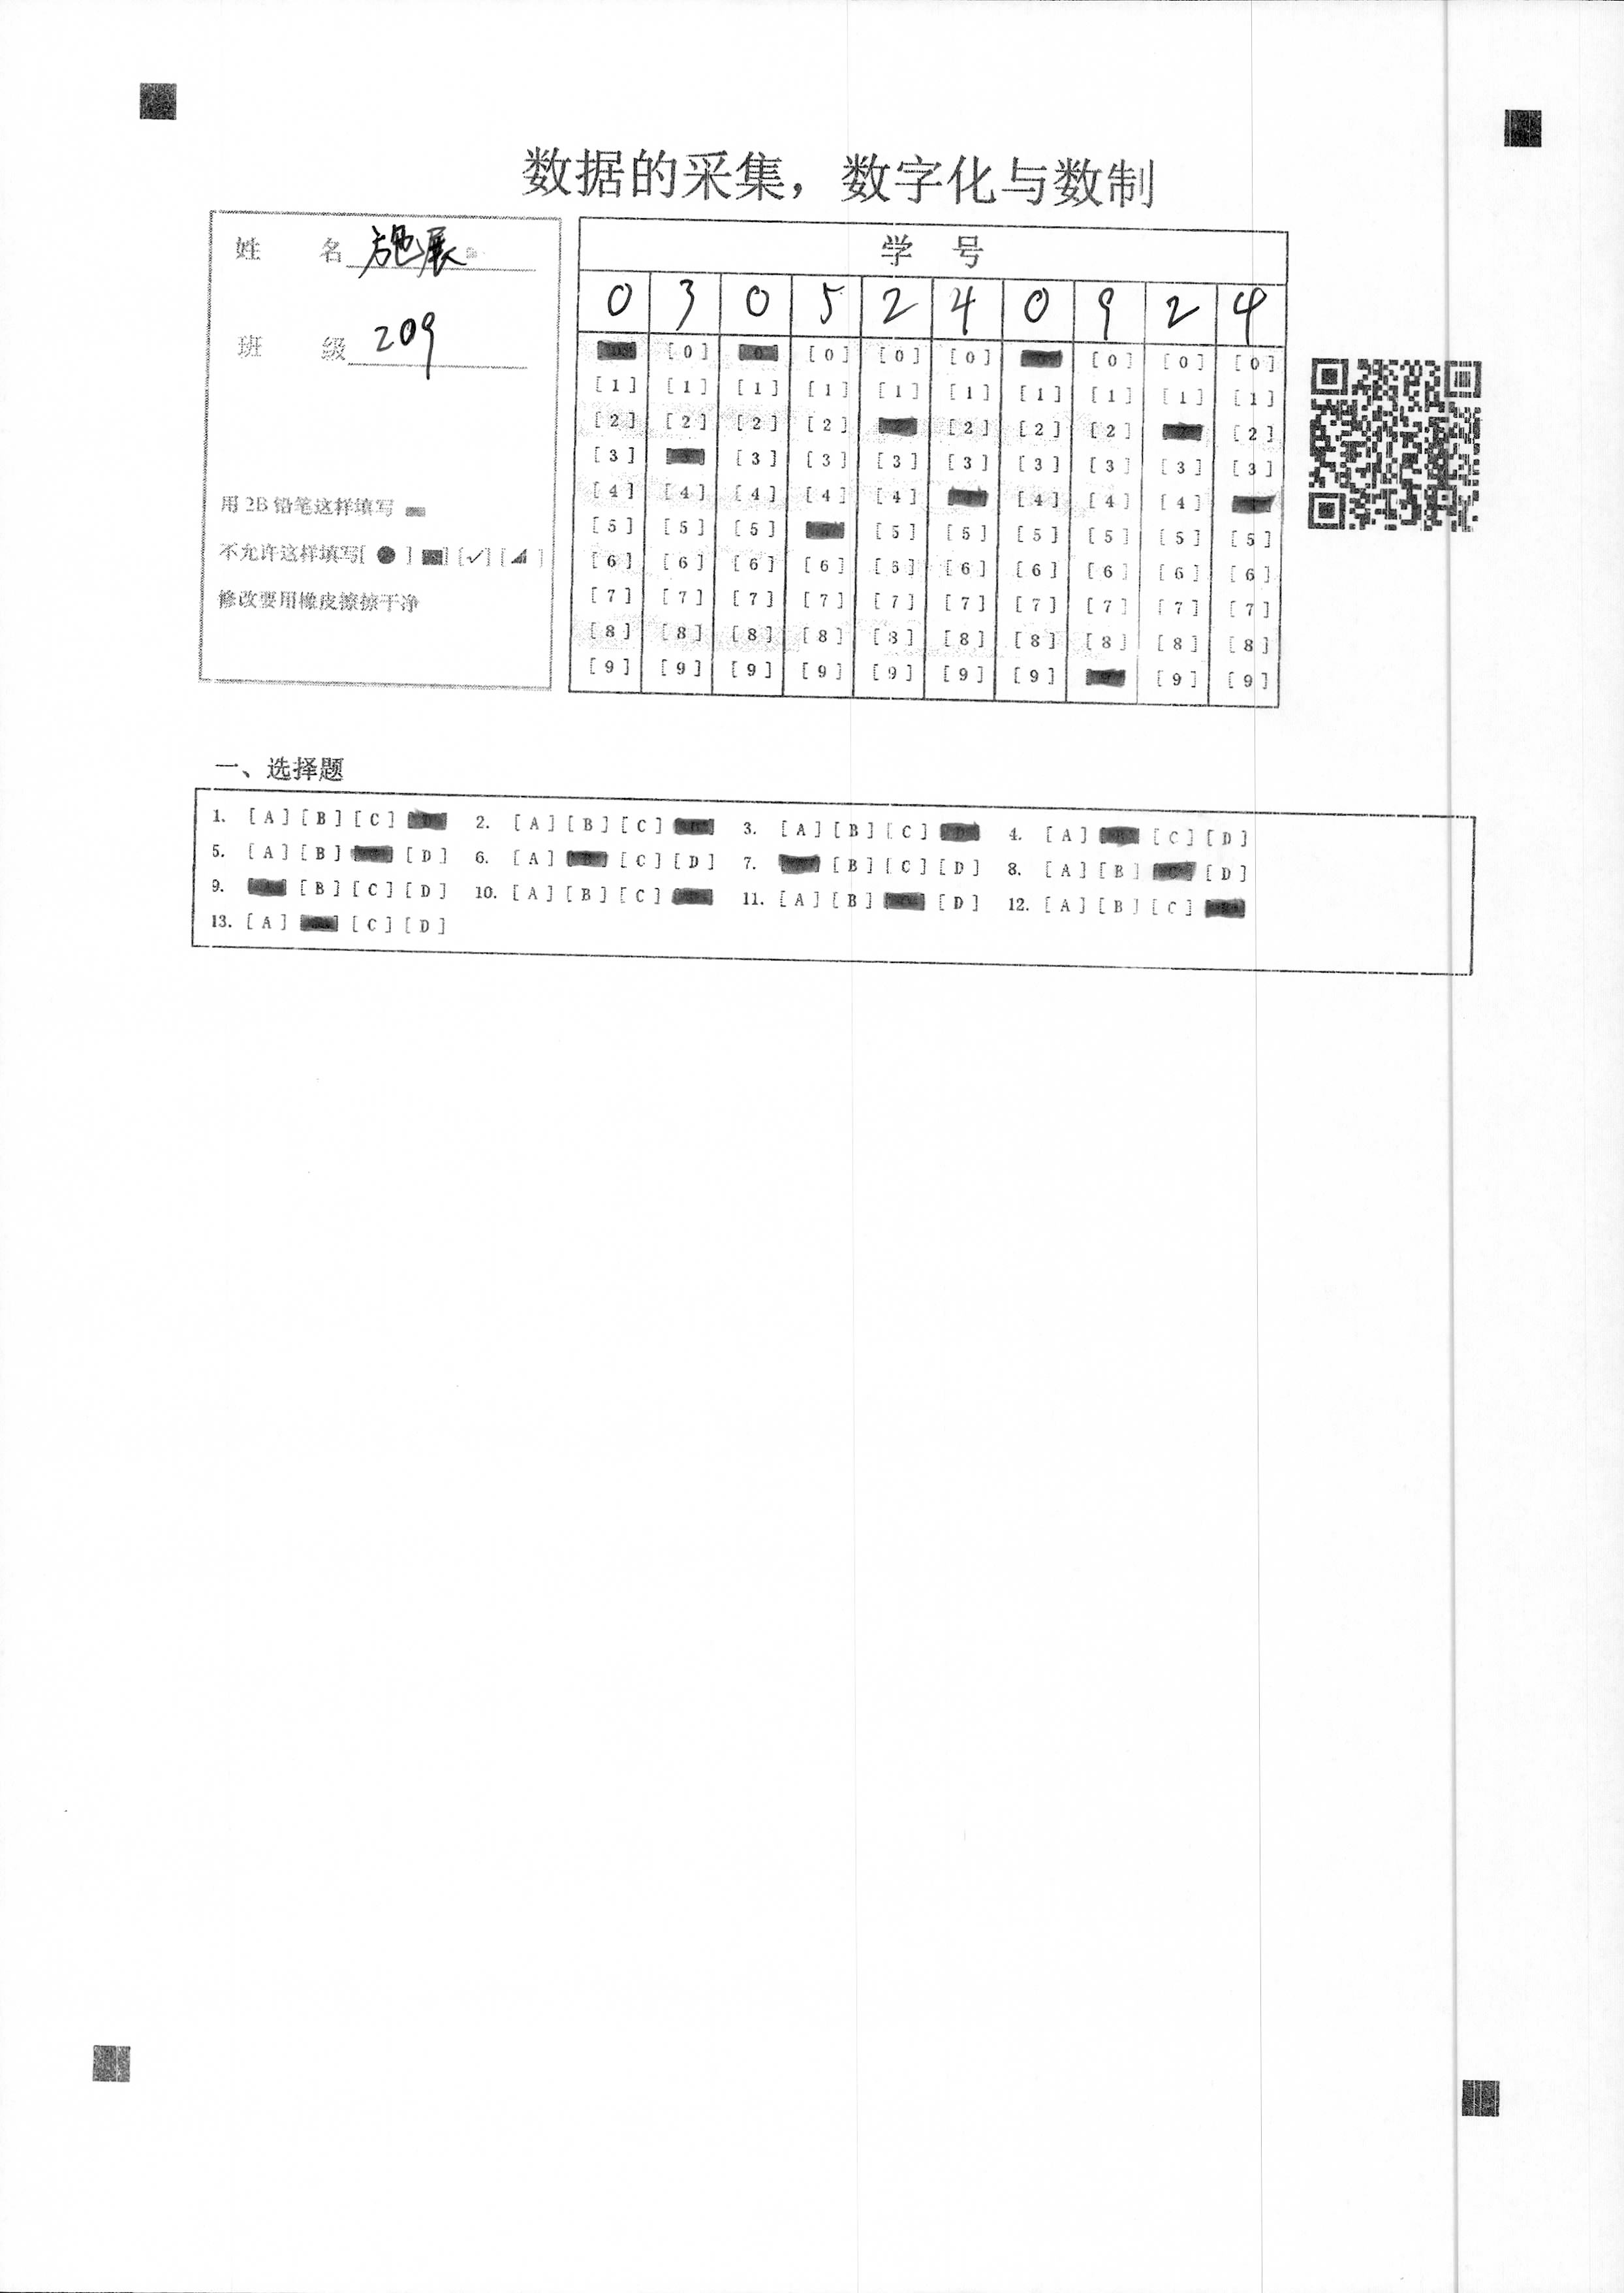 数据的采集，数字化与数制
姓 名 施展
班 级 209
用 2B 铅笔这样填写
不允许这样填写[ ● ] [ ■ ] [✓] [◢ ]
修改要用橡皮擦擦干净
学 号
0 3 0 5 2 4 0 9 2 4
[0] [0] [0] [0] [0] [0] [0]
[1] [1] [1] [1] [1] [1] [1] [1] [1] [1]
[2] [2] [2] [2] [2] [2] [2] [2]
[3] [3] [3] [3] [3] [3] [3] [3] [3]
[4] [4] [4] [4] [4] [4] [4] [4]
[5] [5] [5] [5] [5] [5] [5] [5] [5]
[6] [6] [6] [6] [6] [6] [6] [6] [6] [6]
[7] [7] [7] [7] [7] [7] [7] [7] [7] [7]
[8] [8] [8] [8] [8] [8] [8] [8] [8] [8]
[9] [9] [9] [9] [9] [9] [9] [9] [9]
一、选择题
1. [A] [B] [C] 2. [A] [B] [C] 3. [A] [B] [C] [D] 4. [A] [C] [D]
5. [A] [B] [D] 6. [A] [C] [D] 7. [B] [C] [D] 8. [A] [B] [D]
9. [B] [C] [D] 10. [A] [B] [C] 11. [A] [B] [D] 12. [A] [B] [C]
13. [A] [C] [D]